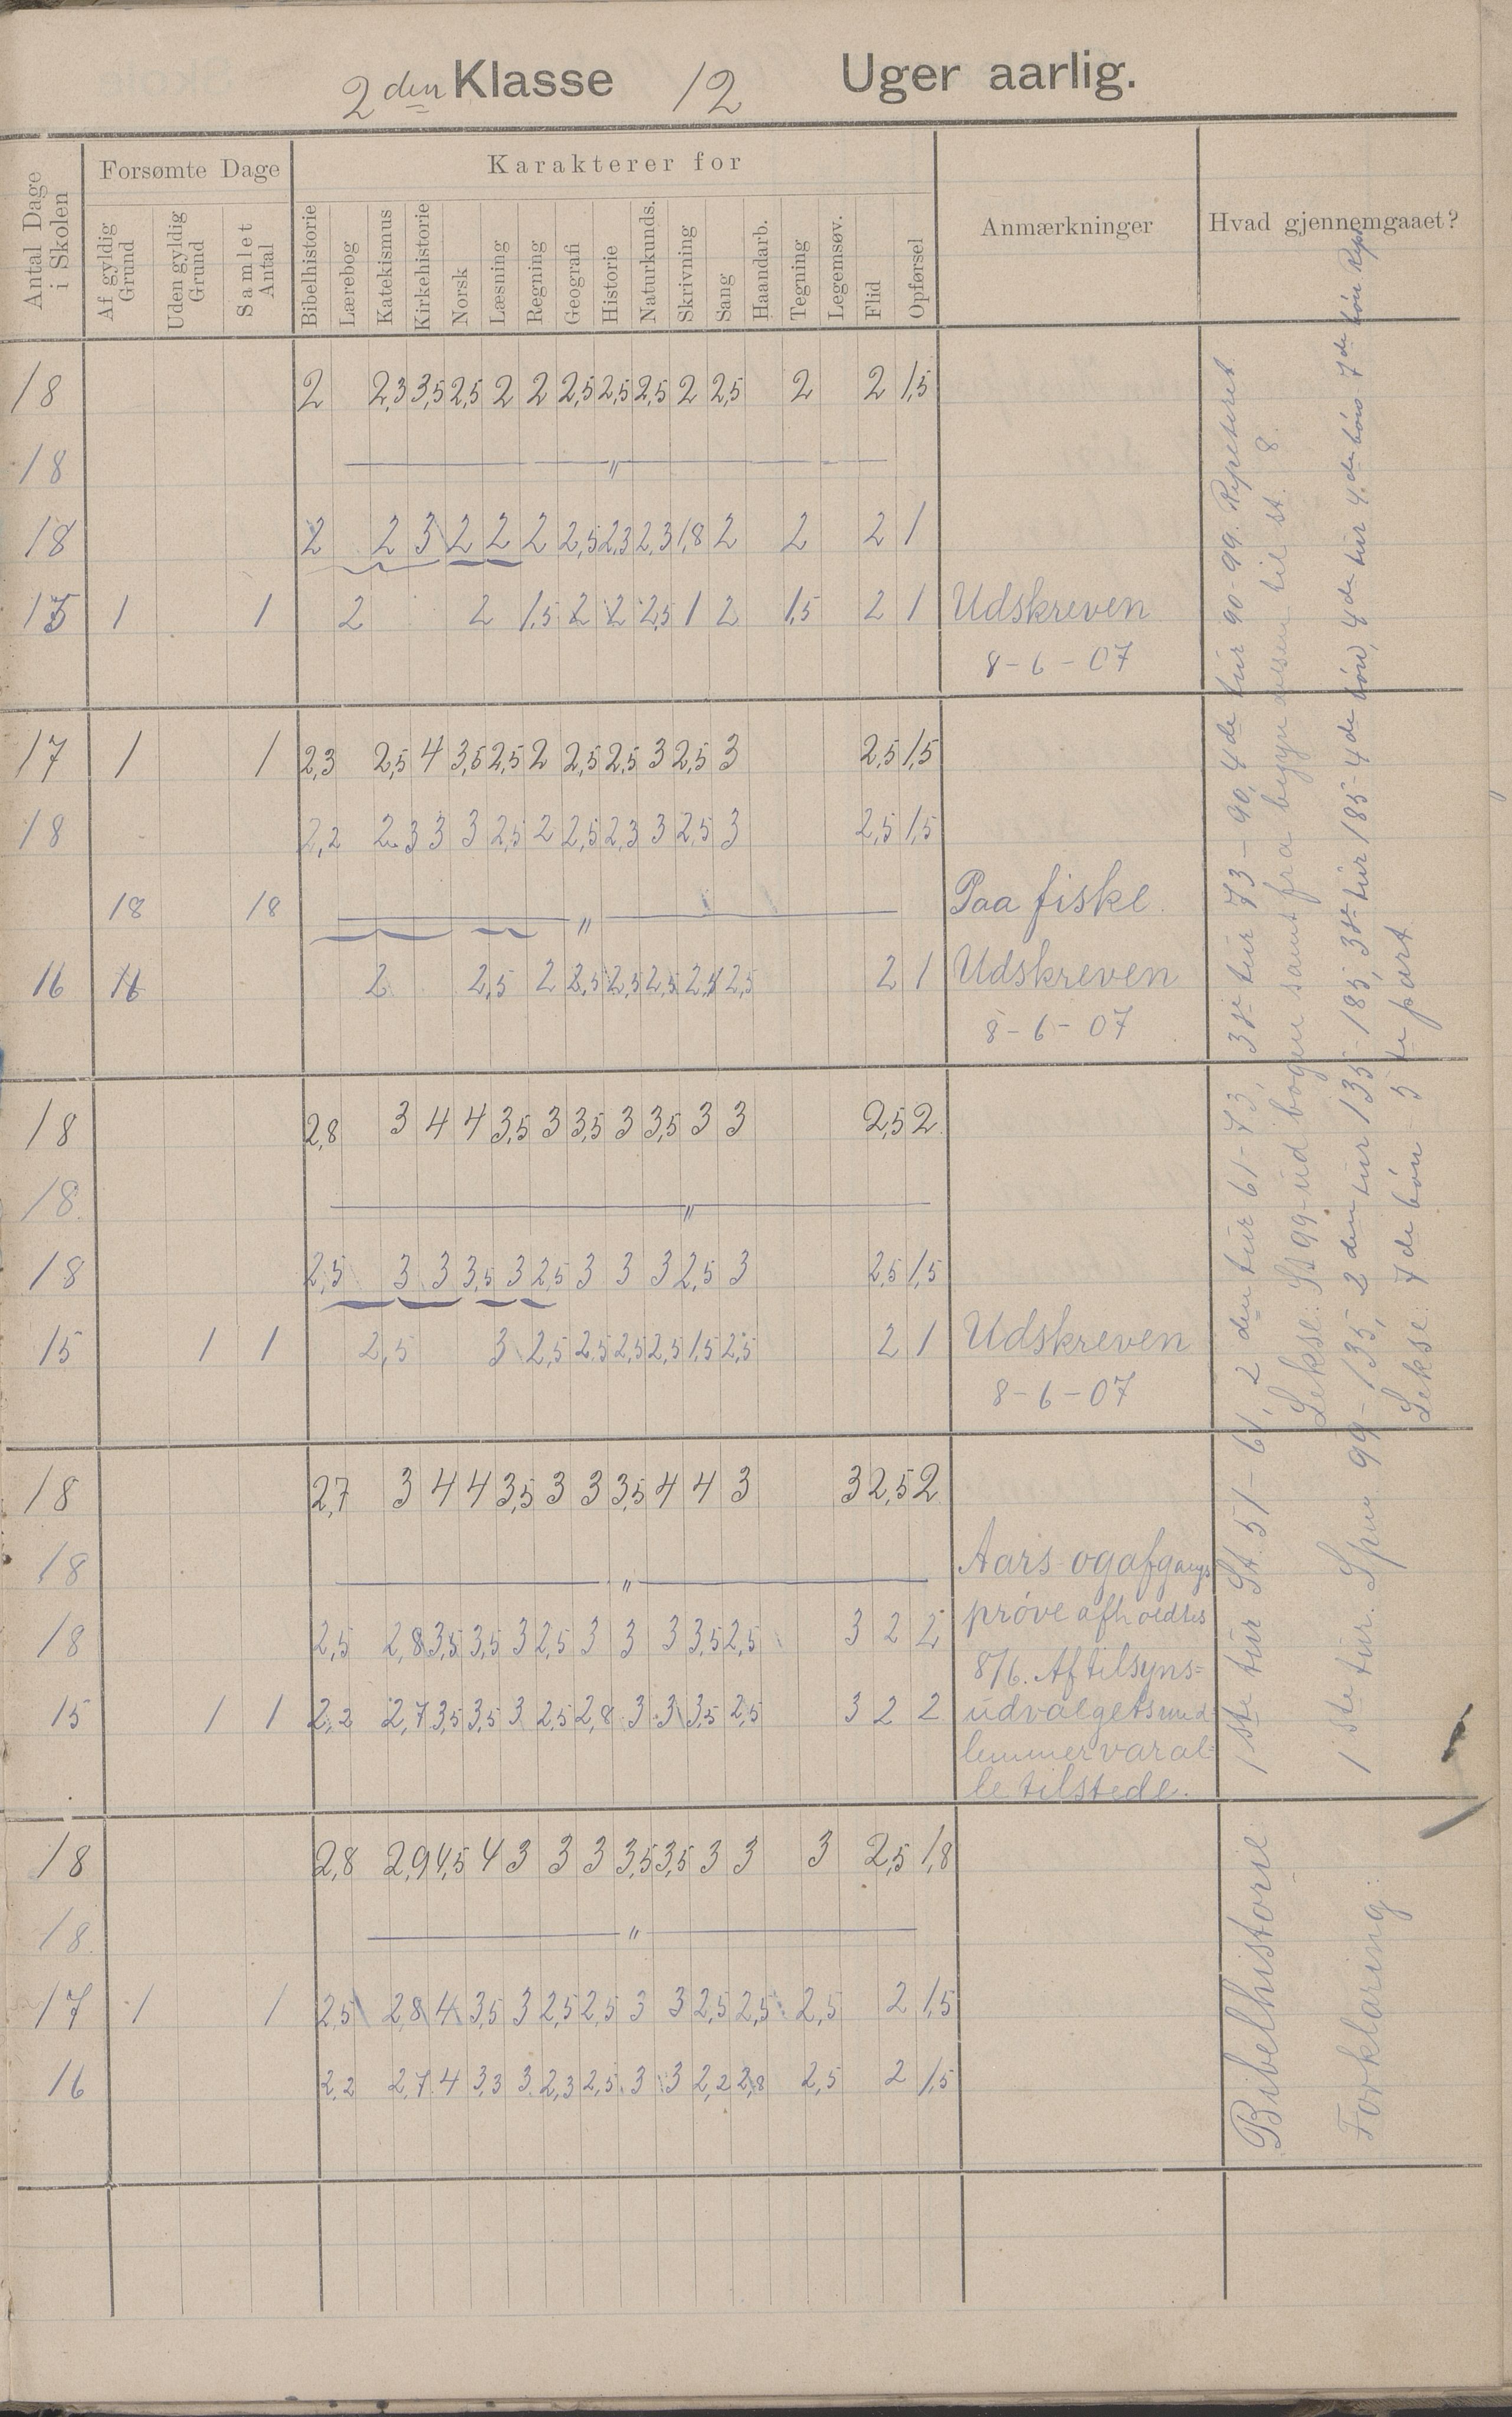 2den Klasse 12 Uger aarlig.
Antal Dage i Skolen
Forsømte Dage
Af gyldig Grund
Uden gyldig Grund
Samlet Antal
Karakterer for
Bibelhistorie
Lærebog
Katekismus
Kirkehistorie
Norsk
Læsning
Regning
Geografi
Historie
Naturkunds.
Skrivning
Sang
Haandarb.
Tegning
Legemsøv.
Flid
Opførsel
Anmærkninger
Hvad gjennemgaaet?
18 2 2,3 3,5 2,5 2 2 2,5 2,5 2,5 2 2,5 2 2 1,5
18 "
18 2 2 3 2 2 2 2,5 2,3 2,3 1,8 2 2 2 1
15 1 1 2 2 1,5 2 2 2,5 1 2 1,5 2 1 Udskreven
8-6-07
17 1 1 2,3 2,5 4 3,5 2,5 2 2,5 2,5 3 2,5 3 2,5 1,5
18 2,2 2,3 3 3 2,5 2 2,5 2,3 3 2,5 3 2,5 1,5
18 18 " Paa fiske.
16 2 2,5 2 2,5 2,5 2,5 2,5 2 1 Udskreven
8-6-07
18 2,8 3 4 4 3,5 3 3,5 3 3,5 3 3 2,5 2
18 "
18 2,5 3 3 3,5 3 2,5 3 3 3 2,5 3 2,5 1,5
15 1 1 2,5 3 2,5 2,5 2,5 2,5 1,5 2,5 2 1 Udskreven
8-6-07
18 2,7 3 4 4 3,5 3 3 3,5 4 4 3 3 2,5 2
18 " Aars og afgangs
prøve afholdtes
18 2,5 2,8 3,5 3,5 3 2,5 3 3 3 3,5 2,5 3 2 2
8/6. Af tilsyns=
15 1 1 2,2 2,7 3,5 3,5 3 2,5 2,8 3 3 3,5 2,5 3 2 2
udvalgets med=
lemmer var al=
le tilstede.
18 2,8 2,9 4,5 4 3 3 3 3,5 3,5 3 3 3 2,5 1,8
18 "
17 1 1 2,5 2,8 4 3,5 3 2,5 2,5 3 3 2,5 2,5 2,5 2 1,5
16 2,2 2,7 4 3,3 3 2,3 2,5 3 3 2,2 2,8 2,5 2 1,5
Bibelhistorie: 1ste tur St. 51-61, 2den tur 61-73, 3die tur 73-90, 4de tur 90-99. Repeteret
Lekse: St 99-ud bogen samt fra begyndelsen til st. 8.
Forklaring: 1ste tur. Spm 99-135, 2den tur 135-185, 3die tur 185-4de bøn, 4de tur 4de bøn 7de bøn Rep.
Lekse: 7de bøn - 5te part